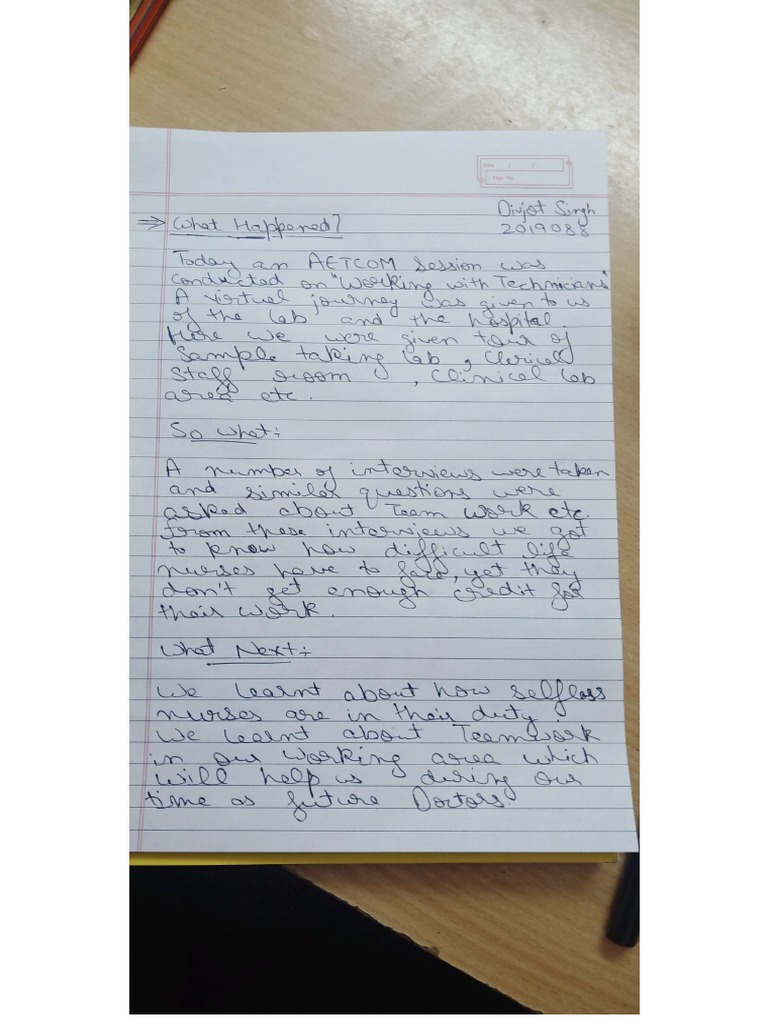 Date / /
Page No.
Divjot Singh
2019088
⇒ What Happened?
Today an AETCOM Session was
conducted on "Working with Technicians"
A virtual journey was given to us
of the lab and the hospital.
Here we were given tour of
Sample taking lab, Clerical
Staff room , Clinical lab
area etc.
So what:-
A number of interviews were taken
and similar questions were
asked about Team work etc.
from these interviews we got
to know how difficult life
nurses have to face, yet they
don't get enough credit for
their work.
What Next:-
We learnt about how selfless
nurses are in their duty.
We learnt about Teamwork
in our working area which
will help us during our
time as future Doctors.